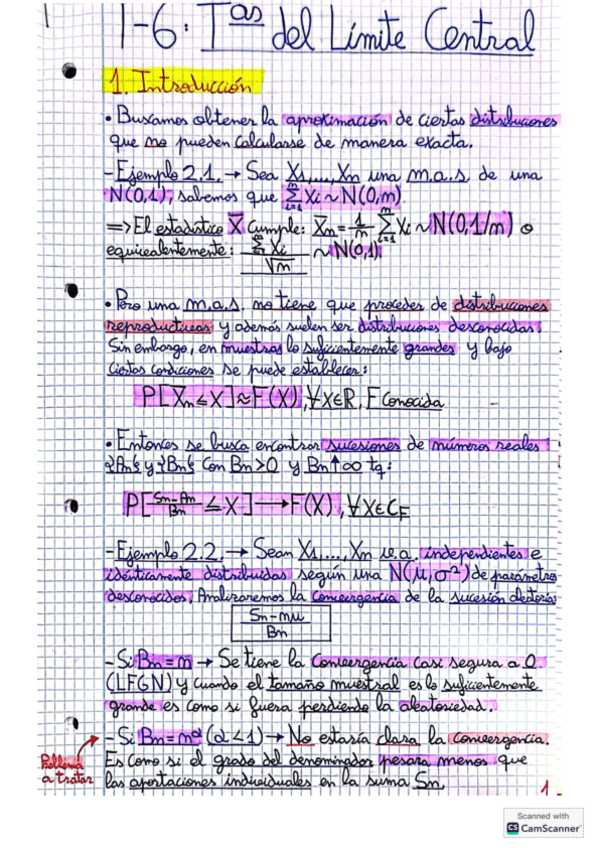 T-6: Tas del Límite Central
1. Introducción
• Buscamos obtener la aproximación de ciertas distribuciones
que no pueden calcularse de manera exacta.
- Ejemplo 2.1. → Sea X1,...,Xn una m.a.s. de una
N(0,1), sabemos que Σ_{i=1}^{n} Xi ~ N(0,n)
=> El estadístico X̄ cumple: X̄n = 1/n Σ_{i=1}^{n} Xi ~ N(0,1/n) o
equivalentemente: Σ_{i=1}^{n} Xi / √n ~ N(0,1)
• Pero una m.a.s. no tiene que proceder de distribuciones
reproductivas y además suelen ser distribuciones desconocidas.
Sin embargo, en muestras lo suficientemente grandes y bajo
ciertas condiciones se puede establecer:
P[X̄n ≤ X] ≈ F(X), ∀x∈R, F conocida.
• Entonces se busca encontrar sucesiones de números reales
{An} y {Bn} con Bn>0 y Bn↑∞ tq:
P[Sn-An / Bn ≤ X] → F(X), ∀X∈CF
- Ejemplo 2.2. → Sean X1,...,Xn v.a. independientes e
idénticamente distribuidas según una N(μ,σ²) de parámetros
desconocidos. Analizaremos la convergencia de la sucesión aleatoria
Sn-nμ / Bn
- Si Bn=n → Se tiene la convergencia casi segura a 0
(LFGN) y cuando el tamaño muestral es lo suficientemente
grande es como si fuera perdiendo la aleatoriedad.
- Si Bn=n^α (α<1) → No estaría clara la convergencia.
Problema
a tratar
Es como si el grado del denominador pesara menos que
las aportaciones individuales en la suma Sn.
1
Scanned with
CS CamScanner